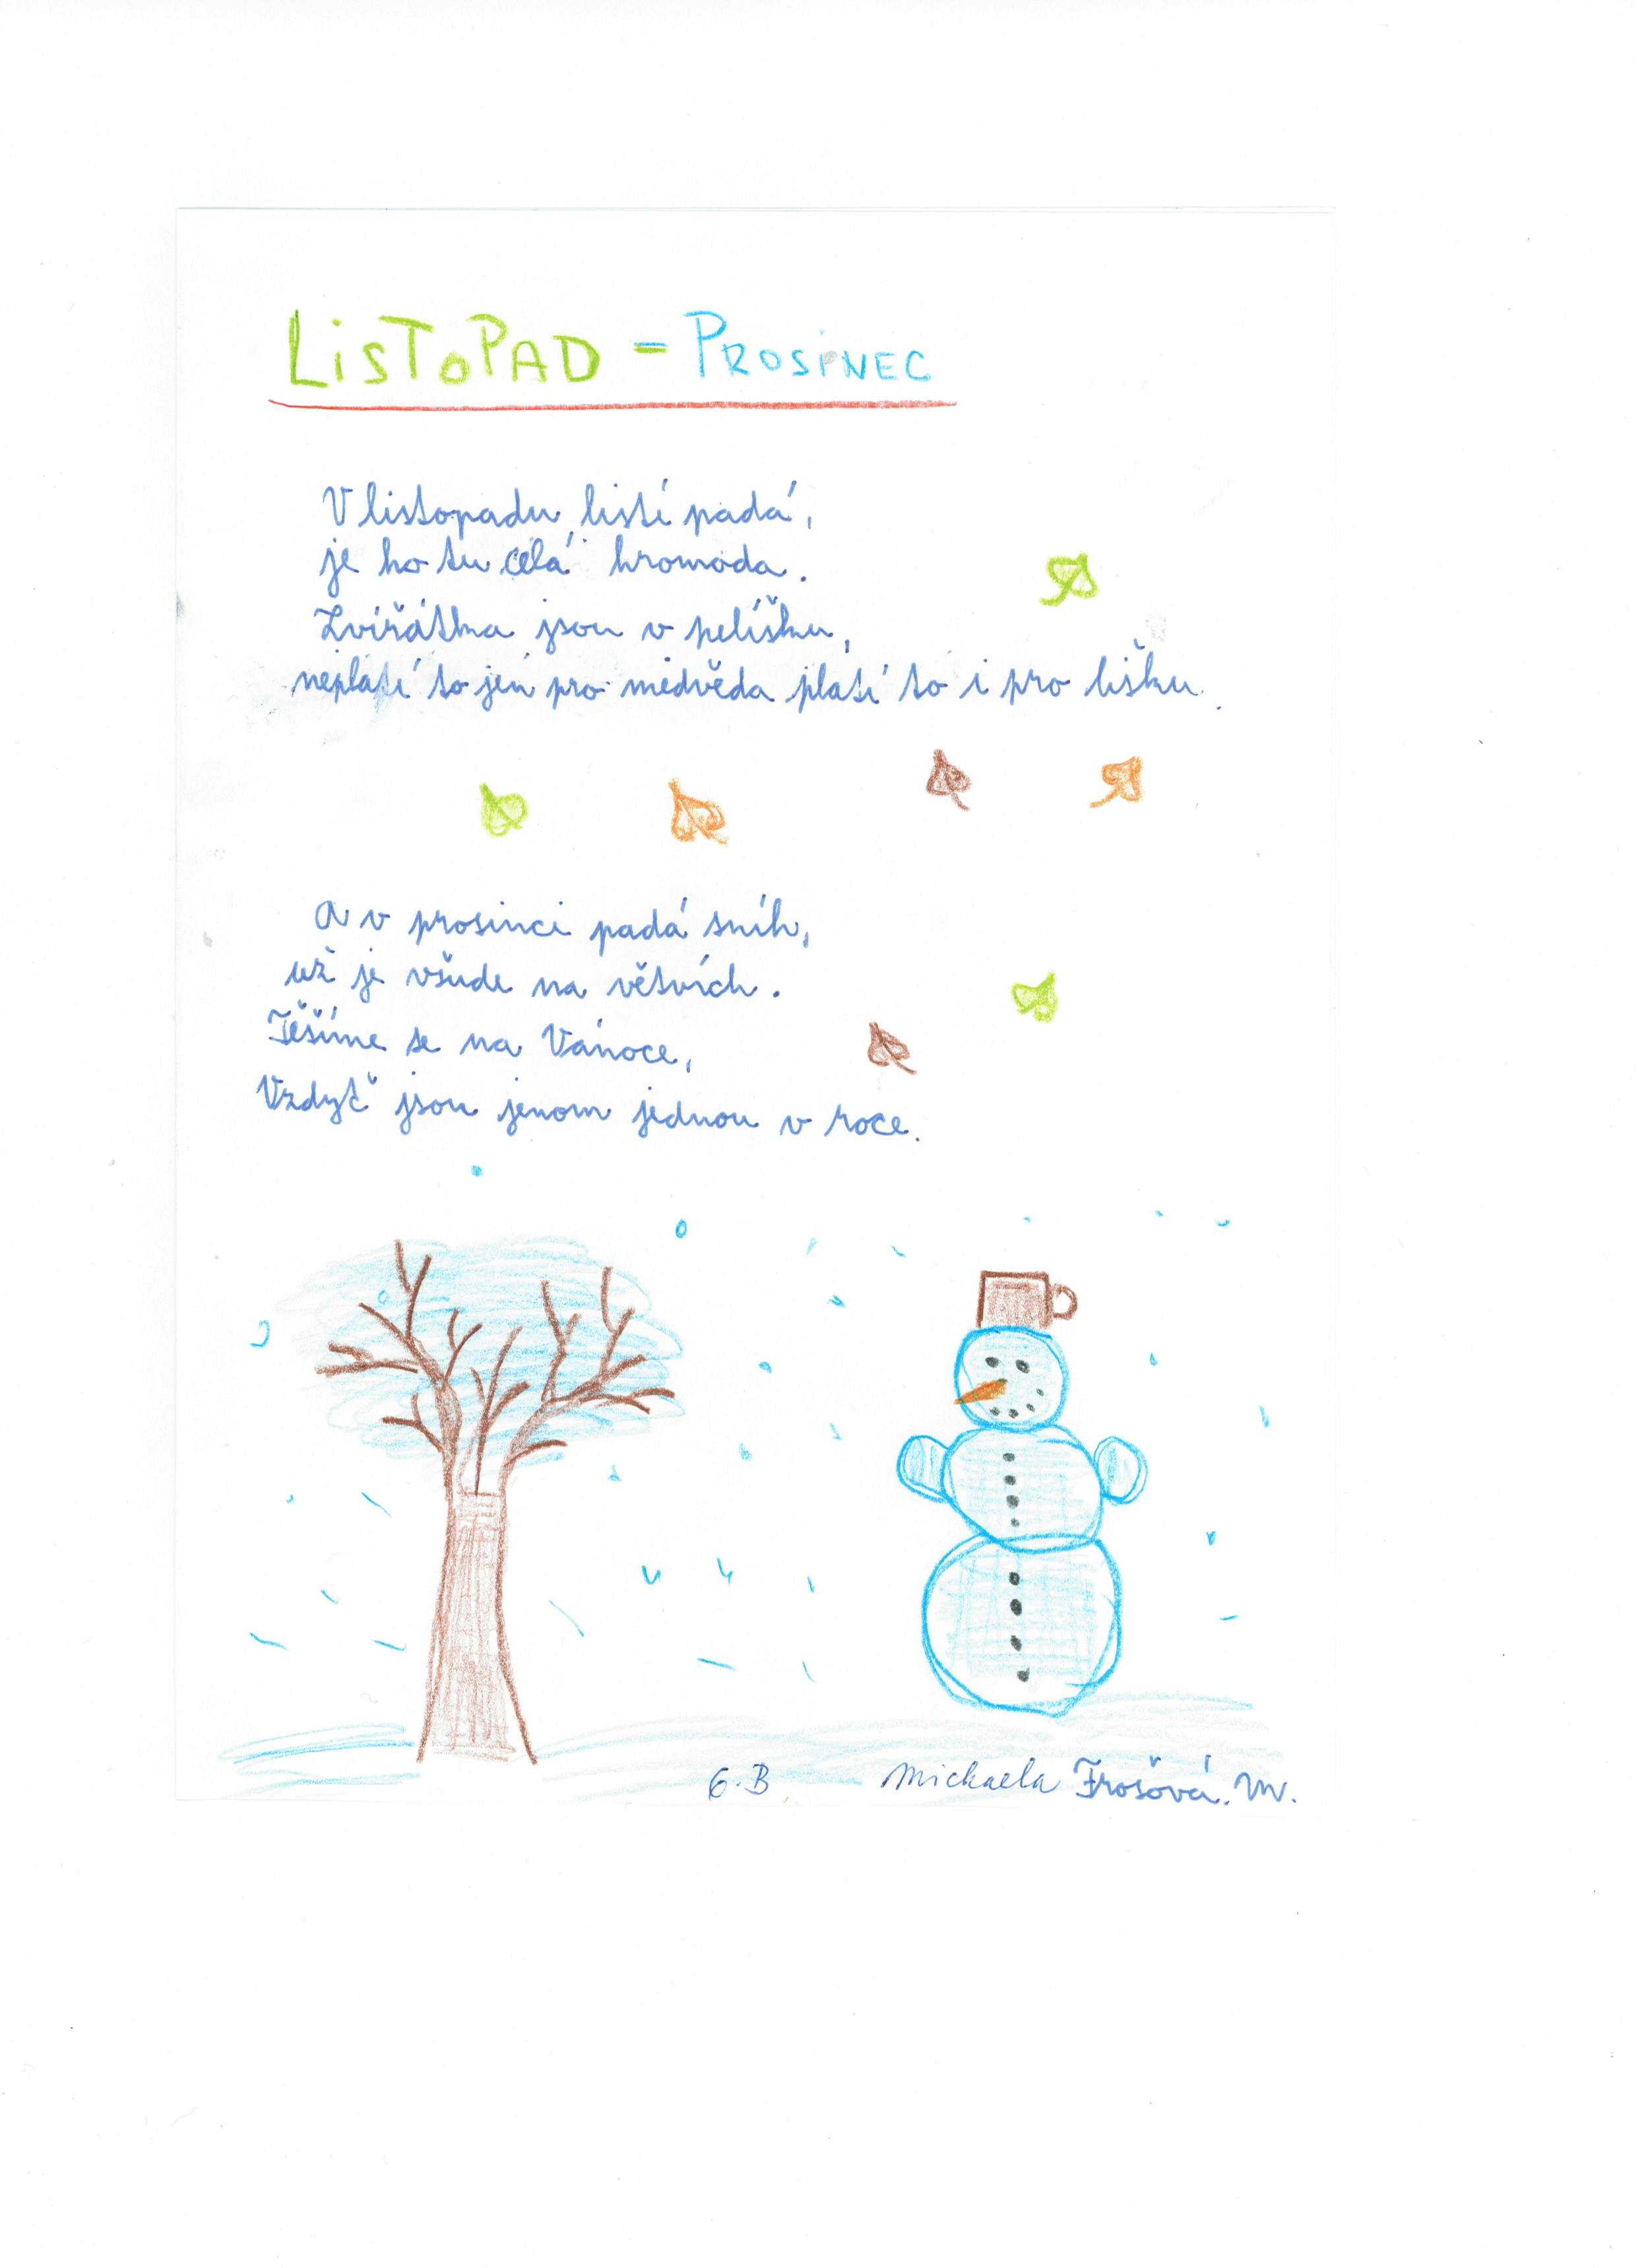 LiSToPAD - PROSiNEC
V listopadu listí padá,
je ho tu celá hromada.
Zvířátka jsou v pelíšku,
neplatí to jen pro medvěda platí to i pro lišku.
A v prosinci padá sníh,
už je všude na větvích.
Těšíme se na Vánoce,
Vždyť jsou jenom jednou v roce.
6.B Michaela Frošová. VV.